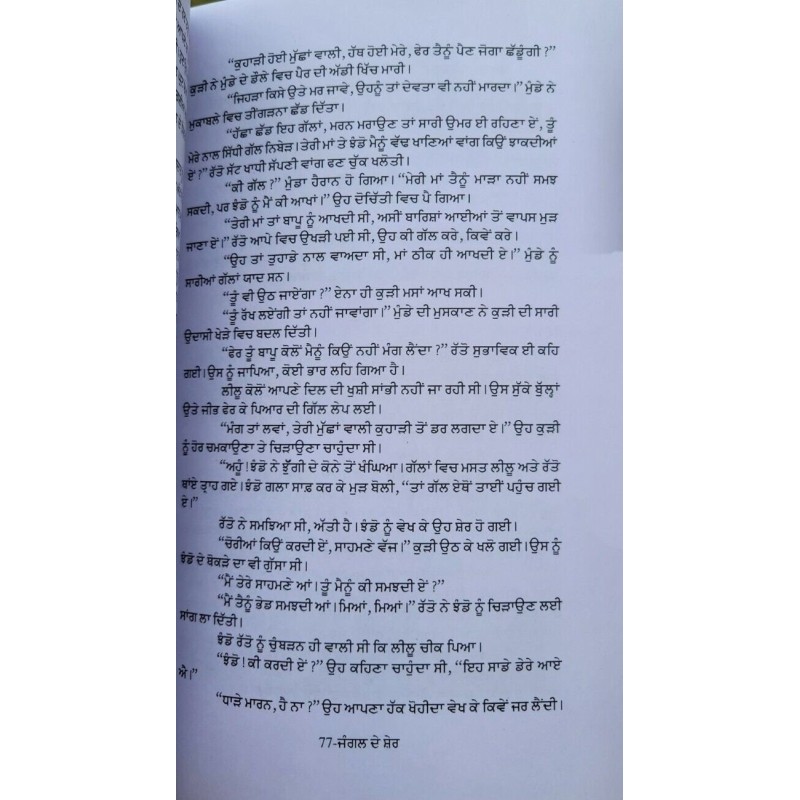 “ਕੁਹਾੜੀ ਹੋਈ ਮੁੱਛਾਂ ਵਾਲੀ, ਹੱਥ ਹੋਈ ਮੇਰੇ, ਫੇਰ ਤੈਨੂੰ ਪੈਣ ਜੋਗਾ ਛੱਡੂੰਗੀ ?”
ਕੁੜੀ ਨੇ ਮੁੰਡੇ ਦੇ ਡੌਲੇ ਵਿਚ ਪੈਰ ਦੀ ਅੱਡੀ ਖਿੱਚ ਮਾਰੀ।
“ਜਿਹੜਾ ਕਿਸੇ ਉਤੇ ਮਰ ਜਾਵੇ, ਉਹਨੂੰ ਤਾਂ ਦੇਵਤਾ ਵੀ ਨਹੀਂ ਮਾਰਦਾ।” ਮੁੰਡੇ ਨੇ
ਮੁਕਾਬਲੇ ਵਿਚ ਤੀਂਗੜਨਾ ਛੱਡ ਦਿੱਤਾ।
“ਹੱਛਾ ਛੱਡ ਇਹ ਗੱਲਾਂ, ਮਰਨ ਮਰਾਉਣ ਤਾਂ ਸਾਰੀ ਉਮਰ ਈ ਰਹਿਣਾ ਏਂ, ਤੂੰ
ਮੇਰੇ ਨਾਲ ਸਿੱਧੀ ਗੱਲ ਨਿਬੇੜ। ਤੇਰੀ ਮਾਂ ਤੇ ਝੰਡੋ ਮੈਨੂੰ ਵੱਢ ਖਾਣਿਆਂ ਵਾਂਗ ਕਿਉਂ ਝਾਕਦੀਆਂ
ਏਂ ?” ਰੱਤੋ ਸੱਟ ਖਾਧੀ ਸੱਪਣੀ ਵਾਂਗ ਫਣ ਚੁੱਕ ਖਲੋਤੀ।
“ਕੀ ਗੱਲ ?” ਮੁੰਡਾ ਹੈਰਾਨ ਹੋ ਗਿਆ। “ਮੇਰੀ ਮਾਂ ਤੈਨੂੰ ਮਾੜਾ ਨਹੀਂ ਸਮਝ
ਸਕਦੀ, ਪਰ ਝੰਡੋ ਨੂੰ ਮੈਂ ਕੀ ਆਖਾਂ।” ਉਹ ਦੋਚਿੱਤੀ ਵਿਚ ਪੈ ਗਿਆ।
“ਤੇਰੀ ਮਾਂ ਤਾਂ ਬਾਪੂ ਨੂੰ ਆਖਦੀ ਸੀ, ਅਸੀਂ ਬਾਰਿਸ਼ਾਂ ਆਈਆਂ ਤੋਂ ਵਾਪਸ ਮੁੜ
ਜਾਣਾ ਏਂ।” ਰੱਤੋ ਆਪੇ ਵਿਚ ਉਖੜੀ ਪਈ ਸੀ, ਉਹ ਕੀ ਗੱਲ ਕਰੇ, ਕਿਵੇਂ ਕਰੇ।
“ਉਹ ਤਾਂ ਤੁਹਾਡੇ ਨਾਲ ਵਾਅਦਾ ਸੀ, ਮਾਂ ਠੀਕ ਹੀ ਆਖਦੀ ਏ।” ਮੁੰਡੇ ਨੂੰ
ਸਾਰੀਆਂ ਗੱਲਾਂ ਯਾਦ ਸਨ।
“ਤੂੰ ਵੀ ਉਠ ਜਾਏਂਗਾ ?” ਏਨਾ ਹੀ ਕੁੜੀ ਮਸਾਂ ਆਖ ਸਕੀ।
“ਤੂੰ ਰੱਖ ਲਏਂਗੀ ਤਾਂ ਨਹੀਂ ਜਾਵਾਂਗਾ।” ਮੁੰਡੇ ਦੀ ਮੁਸਕਾਣ ਨੇ ਕੁੜੀ ਦੀ ਸਾਰੀ
ਉਦਾਸੀ ਖੇੜੇ ਵਿਚ ਬਦਲ ਦਿੱਤੀ।
“ਫੇਰ ਤੂੰ ਬਾਪੂ ਕੋਲੋਂ ਮੈਨੂੰ ਕਿਉਂ ਨਹੀਂ ਮੰਗ ਲੈਂਦਾ ?” ਰੱਤੋ ਸੁਭਾਵਿਕ ਈ ਕਹਿ
ਗਈ। ਉਸ ਨੂੰ ਜਾਪਿਆ, ਕੋਈ ਭਾਰ ਲਹਿ ਗਿਆ ਹੈ।
ਲੀਲੂ ਕੋਲੋਂ ਆਪਣੇ ਦਿਲ ਦੀ ਖੁਸ਼ੀ ਸਾਂਭੀ ਨਹੀਂ ਜਾ ਰਹੀ ਸੀ। ਉਸ ਸੁੱਕੇ ਬੁੱਲ੍ਹਾਂ
ਉਤੇ ਜੀਭ ਫੇਰ ਕੇ ਪਿਆਰ ਦੀ ਗਿੱਲ ਲੇਪ ਲਈ।
“ਮੰਗ ਤਾਂ ਲਵਾਂ, ਤੇਰੀ ਮੁੱਛਾਂ ਵਾਲੀ ਕੁਹਾੜੀ ਤੋਂ ਡਰ ਲਗਦਾ ਏ।” ਉਹ ਕੁੜੀ
ਨੂੰ ਹੋਰ ਚਮਕਾਉਣਾ ਤੇ ਚਿੜਾਉਣਾ ਚਾਹੁੰਦਾ ਸੀ।
“ਅਹੂੰ! ਝੰਡੋ ਨੇ ਝੁੱਗੀ ਦੇ ਕੋਨੇ ਤੋਂ ਖੰਘਿਆ। ਗੱਲਾਂ ਵਿਚ ਮਸਤ ਲੀਲੂ ਅਤੇ ਰੱਤੋ
ਥਾਂਏ ਤ੍ਰਾਹ ਗਏ। ਝੰਡੋ ਗਲਾ ਸਾਫ਼ ਕਰ ਕੇ ਮੁੜ ਬੋਲੀ, “ਤਾਂ ਗੱਲ ਏਥੋਂ ਤਾਈਂ ਪਹੁੰਚ ਗਈ
ਏ।”
ਰੱਤੋ ਨੇ ਸਮਝਿਆ ਸੀ, ਅੱਤੀ ਹੈ। ਝੰਡੋ ਨੂੰ ਵੇਖ ਕੇ ਉਹ ਸ਼ੇਰ ਹੋ ਗਈ।
“ਚੋਰੀਆਂ ਕਿਉਂ ਕਰਦੀ ਏਂ, ਸਾਹਮਣੇ ਵੱਜ।” ਕੁੜੀ ਉਠ ਕੇ ਖਲੋ ਗਈ। ਉਸ ਨੂੰ
ਝੰਡੋ ਦੇ ਥੋਕੜੇ ਦਾ ਵੀ ਗੁੱਸਾ ਸੀ।
“ਮੈਂ ਤੇਰੇ ਸਾਹਮਣੇ ਆਂ। ਤੂੰ ਮੈਨੂੰ ਕੀ ਸਮਝਦੀ ਏਂ ?”
“ਮੈਂ ਤੈਨੂੰ ਭੇਡ ਸਮਝਦੀ ਆਂ। ਮਿਆਂ, ਮਿਆਂ।” ਰੱਤੋ ਨੇ ਝੰਡੋ ਨੂੰ ਚਿੜਾਉਣ ਲਈ
ਸਾਂਗ ਲਾ ਦਿੱਤੀ।
ਝੰਡੋ ਰੱਤੋ ਨੂੰ ਚੁੰਬੜਨ ਹੀ ਵਾਲੀ ਸੀ ਕਿ ਲੀਲੂ ਚੀਕ ਪਿਆ।
“ਝੰਡੋ! ਕੀ ਕਰਦੀ ਏਂ ?” ਉਹ ਕਹਿਣਾ ਚਾਹੁੰਦਾ ਸੀ, “ਇਹ ਸਾਡੇ ਡੇਰੇ ਆਏ
ਐ।”
“ਧਾੜੇ ਮਾਰਨ, ਹੈ ਨਾ ?” ਉਹ ਆਪਣਾ ਹੱਕ ਖੋਹੀਦਾ ਵੇਖ ਕੇ ਕਿਵੇਂ ਜਰ ਲੈਂਦੀ।
77-ਜੰਗਲ ਦੇ ਸ਼ੇਰ